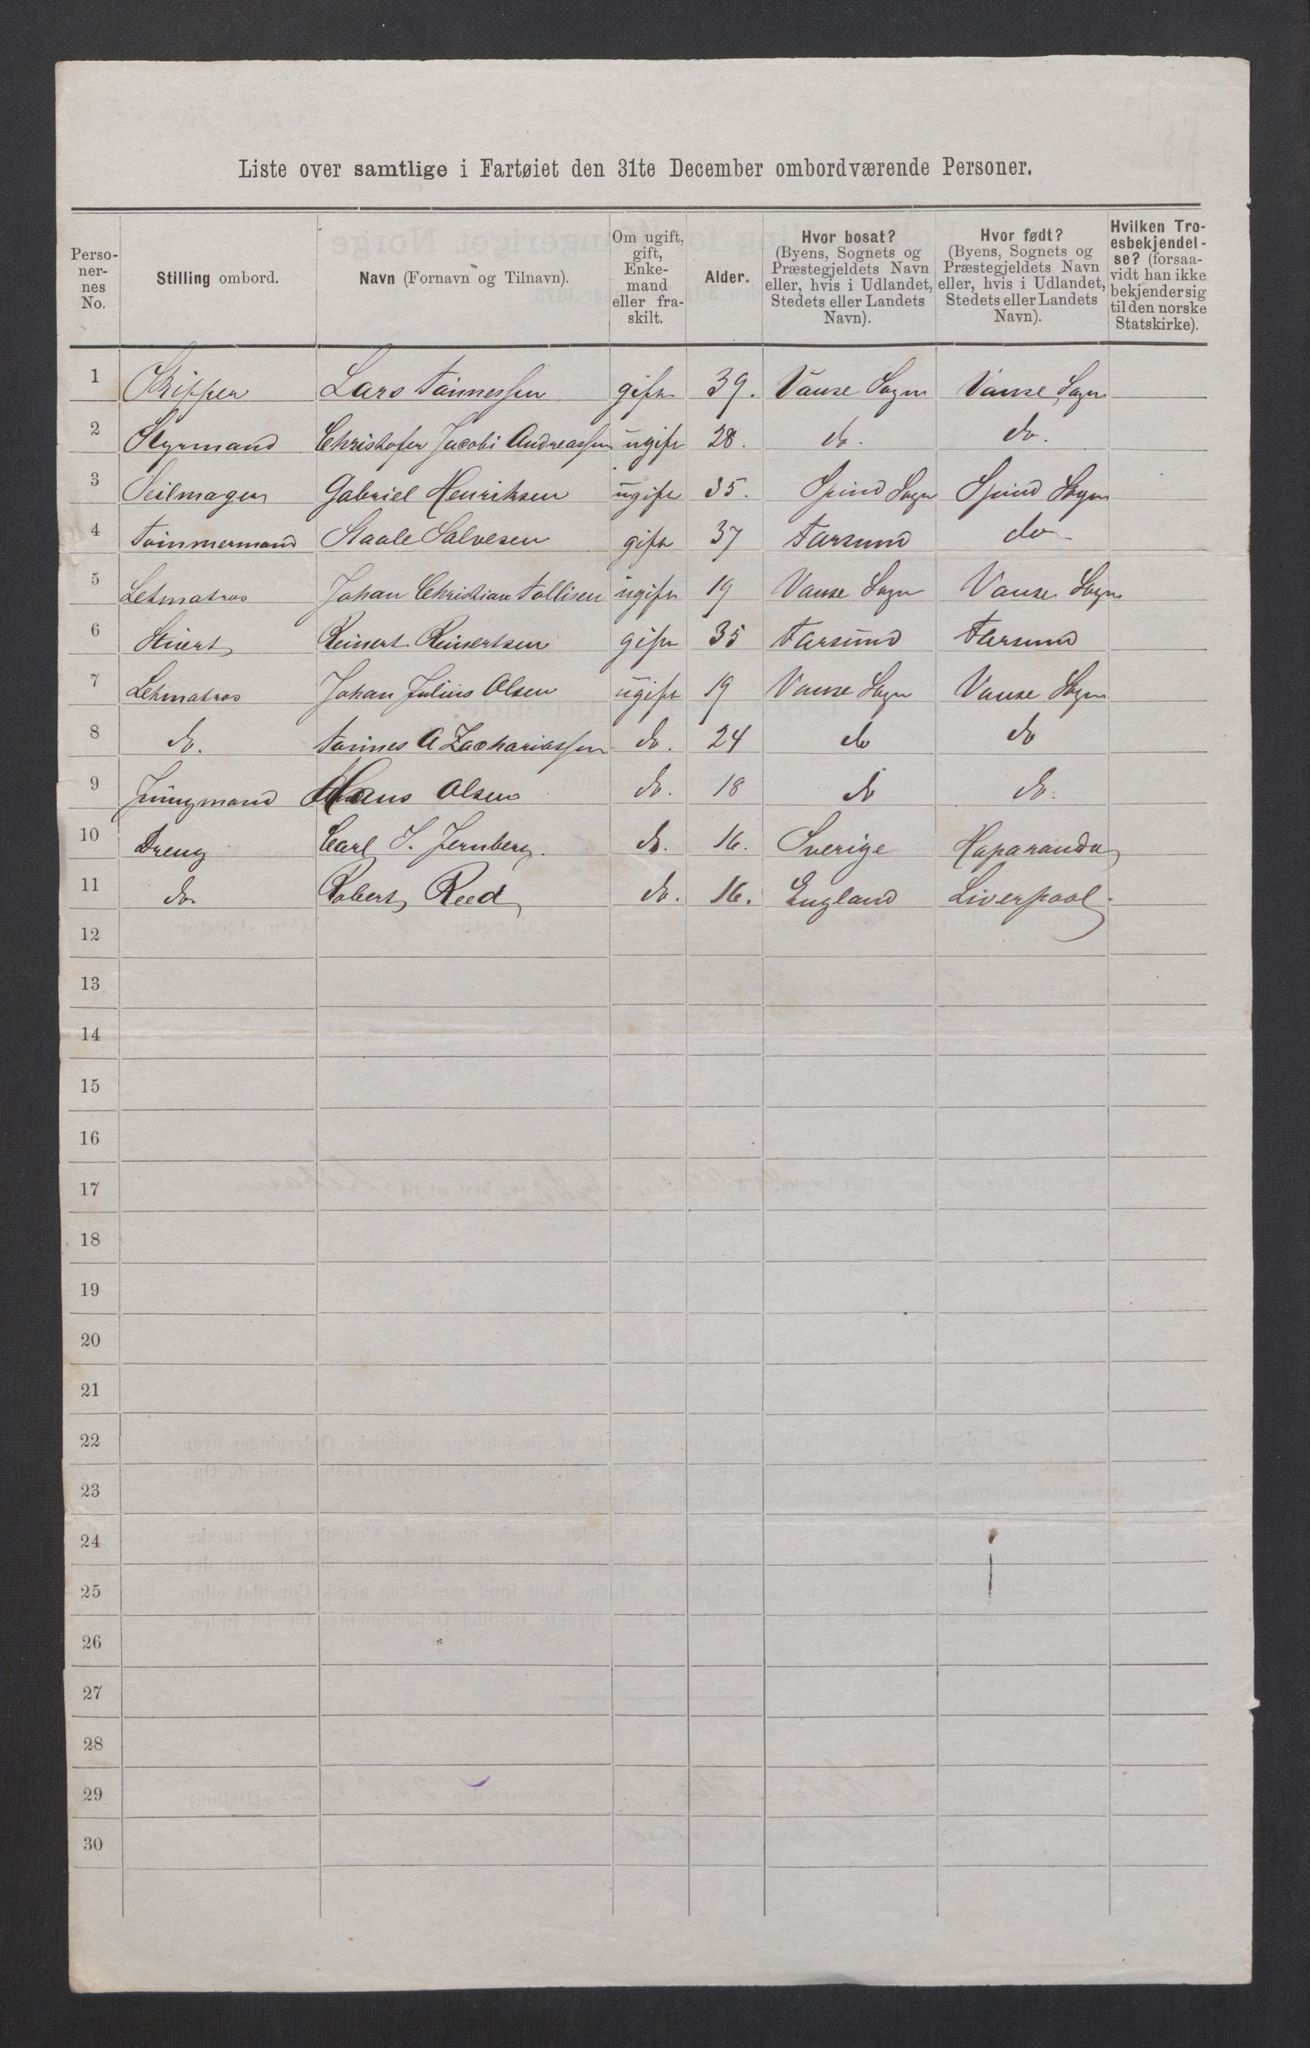 Liste over samtlige i Fartøiet den 31te December ombordværende Personer.
Perso-
ner-
nes
No.
Stilling ombord.
Navn (Fornavn og Tilnavn).
Om ugift,
gift,
Enke-
mand
eller fra-
skilt.
Alder.
Hvor bosat?
(Byens, Sognets og
Præstegjeldets Navn
eller, hvis i Udlandet,
Stedets eller Landets
Navn).
Hvor født?
(Byens, Sognets og
Præstegjeldets Navn
eller, hvis i Udlandet,
Stedets eller Landets
Navn).
Hvilken Tro-
esbekjendel-
se? (forsaa-
vidt han ikke
bekjender sig
til den norske
Statskirke).
1 Skipper Lars Tønnessen gift 39. Vanse Sogn Vanse Sogn
2 Styrmand Christofer Jacobi Andreassen ugift 28. do. do.
3 Seilmager Gabriel Henriksen ugift 35. Spind Sogn Spind Sogn
4 Tømmermand Staale Salvesen gift 37 Farsund do
5 Letmatros Johan Christian Tollisen ugift 19 Vanse Sogn Vanse Sogn
6 Stuert Reinert Reinertsen gift 35 Farsund Farsund
7 Letmatros Johan Julius Olsen ugift 19 Vanse Sogn Vanse Sogn
8 do. Tønnes A Zachariassen do. 24 do do
9 Jungmand Hans Olsen do. 18 do do.
10 Dreng Carl J. Jernberg. do. 16. Sverige Haparanda
11 do Robert Reed do. 16. England Liverpool.
12
13
14
15
16
17
18
19
20
21
22
23
24
25
26
27
28
29
30